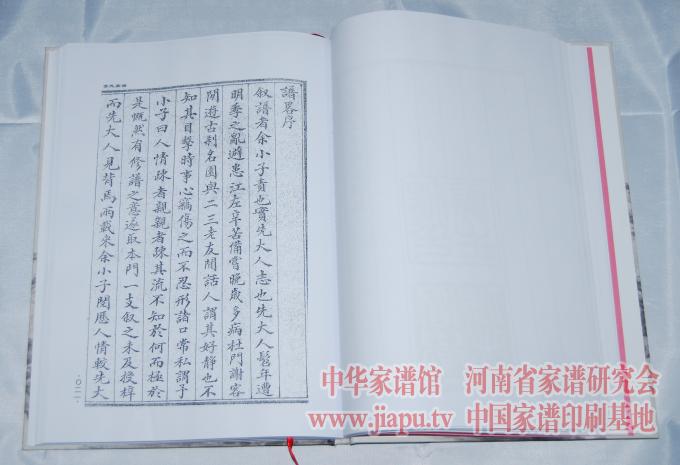 譜畧序
叙譜者余小子責也實先大人志也先大人髫年遭
明季之亂避患江左辛苦備嘗晚歲多病杜門謝客
間遊古刹名園與二三老友閒話人謂其好靜也不
知其目擊時事心竊傷之而不忍形諸口常私謂予
小子曰人情疎者親親者疎其流不知於何而極於
是慨然有修譜之意遂取本門一支叙之未及授梓
而先大人見背焉兩載來余小子閱歷人情較先大
·〇二一·
中华家谱馆 河南省家谱研究会
www.jiapu.tv 中国家谱印刷基地